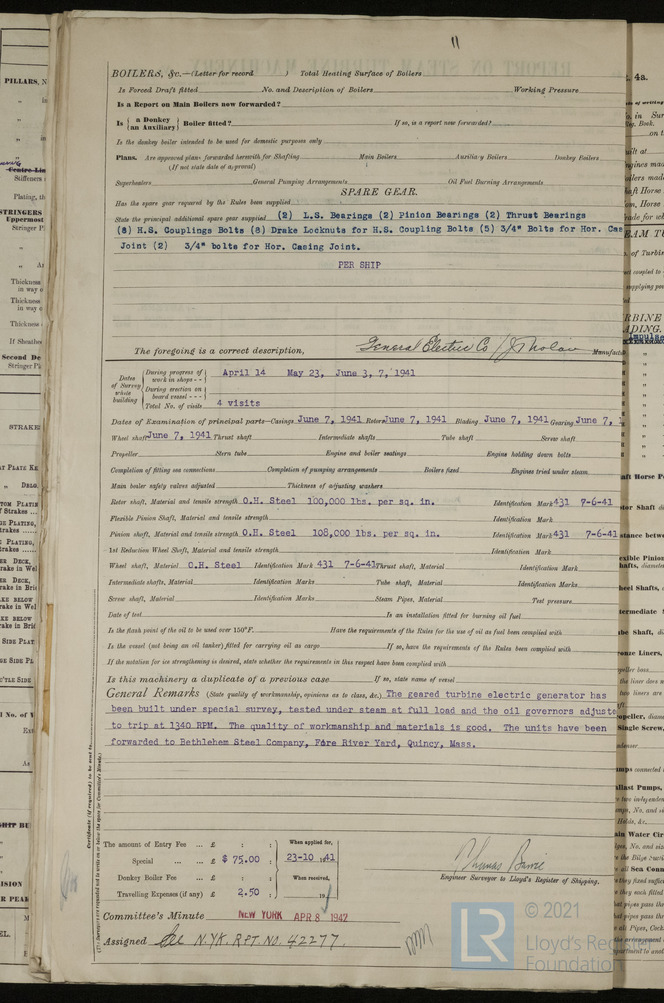 11
BOILERS, &c.—(Letter for record ) Total Heating Surface of Boilers
Is Forced Draft fitted No. and Description of Boilers Working Pressure
Is a Report on Main Boilers now forwarded?
Is { a Donkey / an Auxiliary } Boiler fitted? If so, is a report now forwarded?
Is the donkey boiler intended to be used for domestic purposes only
Plans. Are approved plans forwarded herewith for Shafting Main Boilers Auxiliary Boilers Donkey Boilers
(If not state date of approval)
Superheaters General Pumping Arrangements Oil Fuel Burning Arrangements
SPARE GEAR.
Has the spare gear required by the Rules been supplied
State the principal additional spare gear supplied (2) L.S. Bearings (2) Pinion Bearings (2) Thrust Bearings
(8) H.S. Couplings Bolts (8) Drake Locknuts for H.S. Coupling Bolts (5) 3/4" Bolts for Hor. Cas
Joint (2) 3/4" bolts for Hor. Casing Joint.
PER SHIP
The foregoing is a correct description, General Electric Co / Manufact
Dates of Survey while building
During progress of work in shops - - April 14 May 23, June 3, 7, 1941
During erection on board vessel - - -
Total No. of visits 4 visits
Dates of Examination of principal parts—Casings June 7, 1941 Rotor June 7, 1941 Blading June 7, 1941 Gearing June 7, 1
Wheel shaft June 7, 1941 Thrust shaft Intermediate shafts Tube shaft Screw shaft
Propeller Stern tube Engine and boiler seatings Engine holding down bolts
Completion of fitting sea connections Completion of pumping arrangements Boilers fixed Engines tried under steam
Main boiler safety valves adjusted Thickness of adjusting washers
Rotor shaft, Material and tensile strength O.H. Steel 100,000 lbs. per sq. in. Identification Mark 431 7-6-41
Flexible Pinion Shaft, Material and tensile strength Identification Mark
Pinion shaft, Material and tensile strength O.H. Steel 108,000 lbs. per sq. in. Identification Mark 431 7-6-41
1st Reduction Wheel Shaft, Material and tensile strength Identification Mark
Wheel shaft, Material O.H. Steel Identification Mark 431 7-6-41 Thrust shaft, Material Identification Mark
Intermediate shafts, Material Identification Marks Tube shaft, Material Identification Marks
Screw shaft, Material Identification Marks Steam Pipes, Material Test pressure
Date of test Is an installation fitted for burning oil fuel
Is the flash point of the oil to be used over 150°F. Have the requirements of the Rules for the use of oil as fuel been complied with
Is the vessel (not being an oil tanker) fitted for carrying oil as cargo If so, have the requirements of the Rules been complied with
If the notation for ice strengthening is desired, state whether the requirements in this respect have been complied with
Is this machinery a duplicate of a previous case If so, state name of vessel
General Remarks (State quality of workmanship, opinions as to class, &c.) The geared turbine electric generator has
been built under special survey, tested under steam at full load and the oil governors adjuste
to trip at 1340 RPM. The quality of workmanship and materials is good. The units have been
forwarded to Bethlehem Steel Company, Fore River Yard, Quincy, Mass.
The amount of Entry Fee ... £ : : When applied for,
Special ... ... £ $ 75.00 : 23-10 1941
Donkey Boiler Fee ... £ : : When received,
Travelling Expenses (if any) £ 2.50 : 19
Engineer Surveyor to Lloyd's Register of Shipping.
Committee's Minute NEW YORK APR 8 1942
Assigned See N.YK. RPT. NO. 42277.
LR © 2021
Lloyd's Register
Foundation